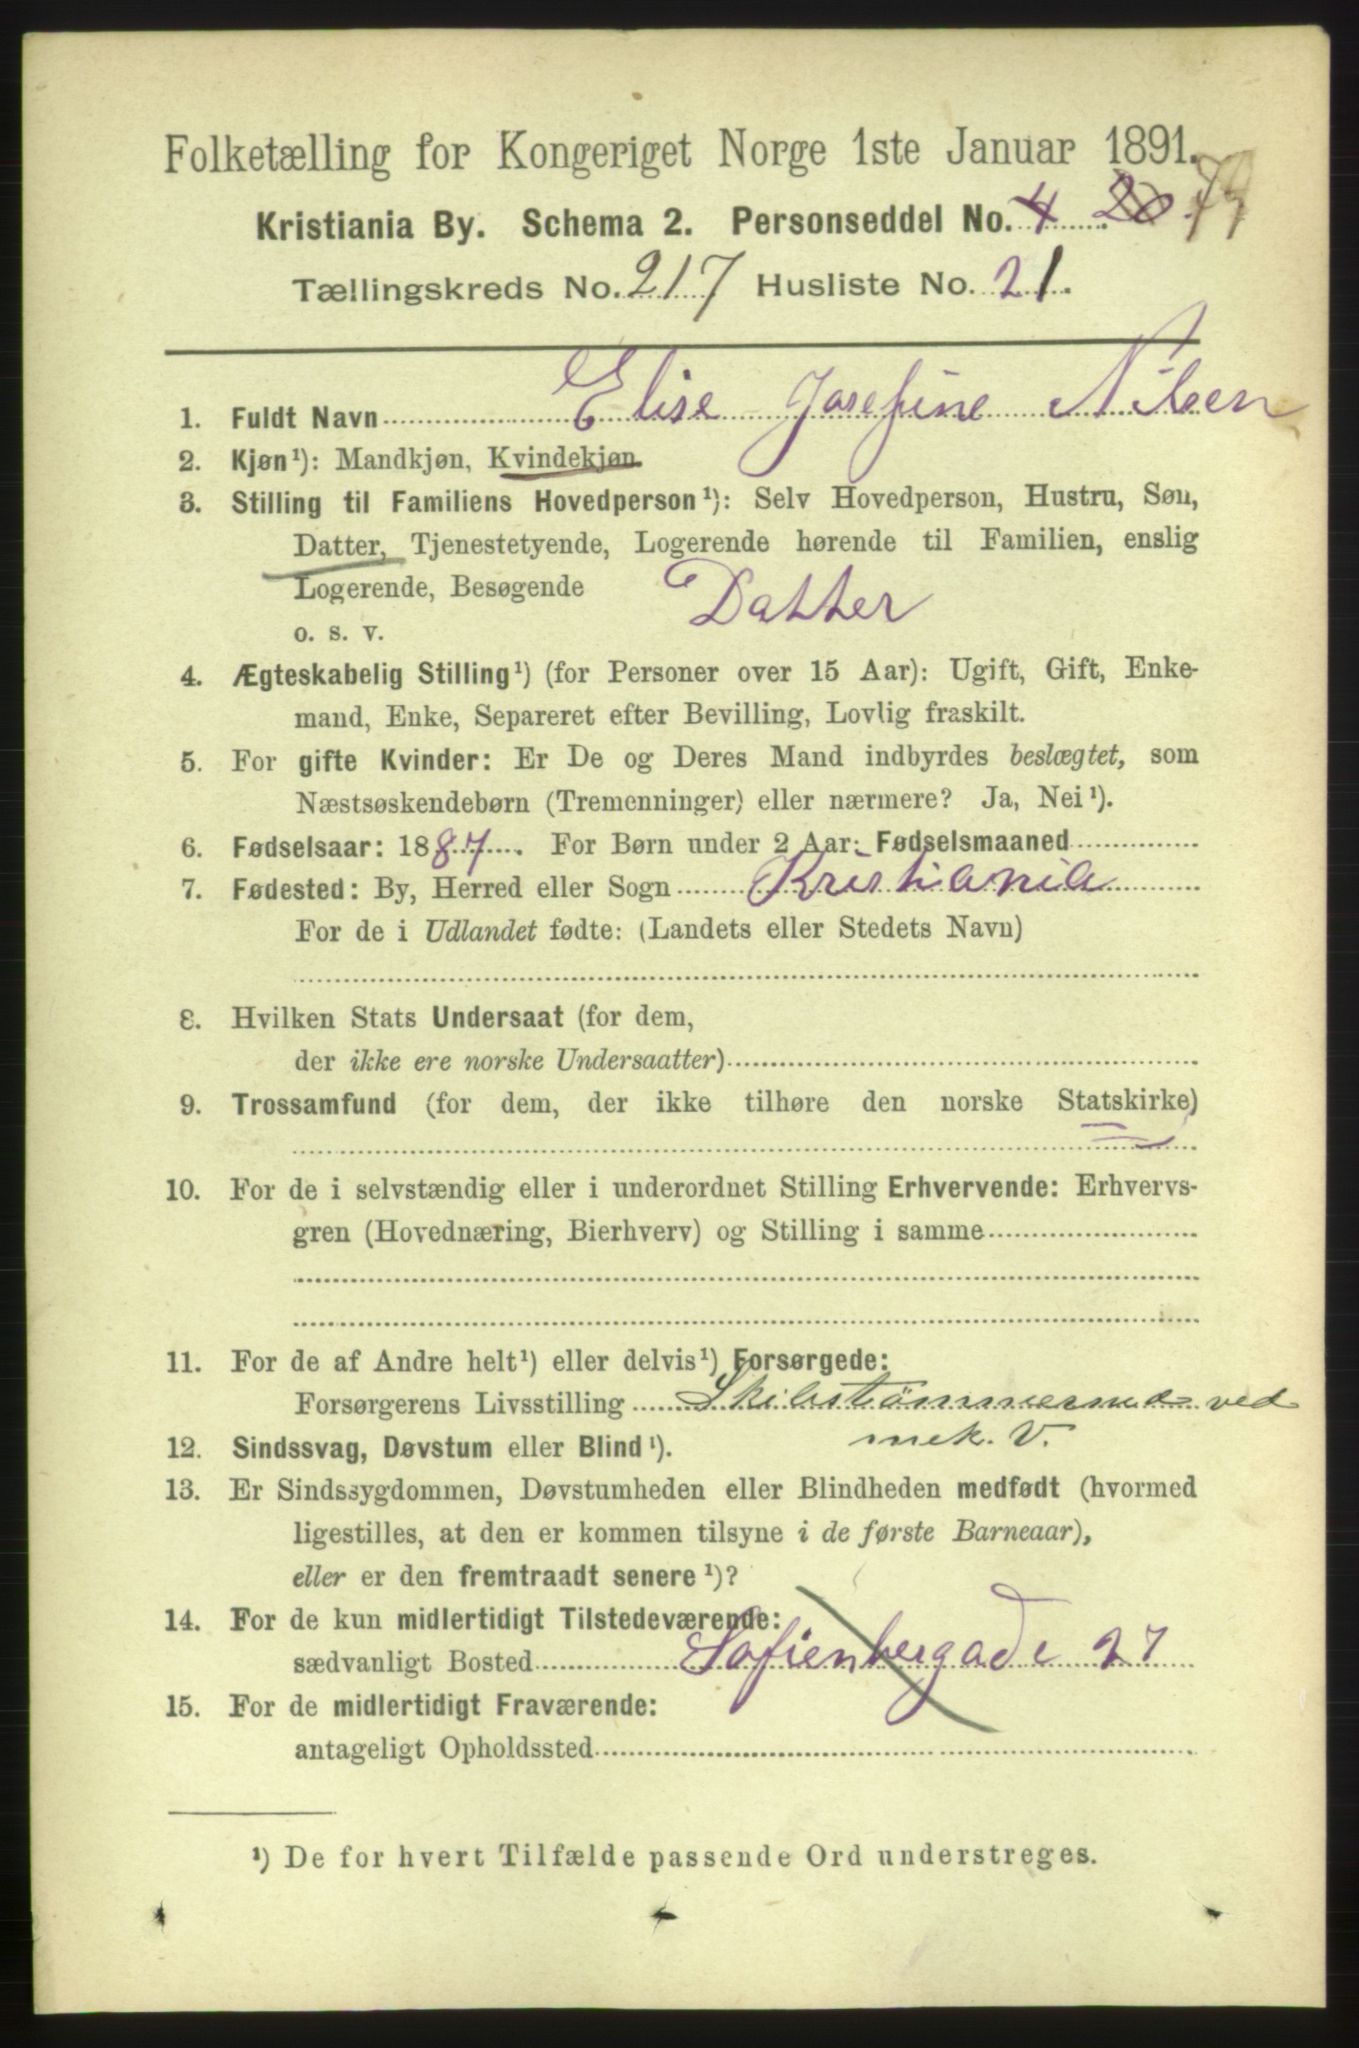 Folketælling for Kongeriget Norge 1ste Januar 1891.
Kristiania By. Schema 2. Personseddel No. 4 20 79
Tællingskreds No. 217 Husliste No. 21.
1. Fuldt Navn Elise Josefine Nilsen
2. Kjøn¹): Mandkjøn, Kvindekjøn
3. Stilling til Familiens Hovedperson¹): Selv Hovedperson, Hustru, Søn,
Datter, Tjenestetyende, Logerende hørende til Familien, enslig
Logerende, Besøgende Datter
o. s. v.
4. Ægteskabelig Stilling¹) (for Personer over 15 Aar): Ugift, Gift, Enke-
mand, Enke, Separeret efter Bevilling, Lovlig fraskilt.
5. For gifte Kvinder: Er De og Deres Mand indbyrdes beslægtet, som
Næstsøskendebørn (Tremenninger) eller nærmere? Ja, Nei¹).
6. Fødselsaar: 1887. For Børn under 2 Aar: Fødselsmaaned
7. Fødested: By, Herred eller Sogn Kristiania
For de i Udlandet fødte: (Landets eller Stedets Navn)
8. Hvilken Stats Undersaat (for dem,
der ikke ere norske Undersaatter)
9. Trossamfund (for dem, der ikke tilhøre den norske Statskirke)
10. For de i selvstændig eller i underordnet Stilling Erhvervende: Erhvervs-
gren (Hovednæring, Bierhverv) og Stilling i samme
11. For de af Andre helt¹) eller delvis¹) Forsørgede:
Forsørgerens Livsstilling Skibstömmermd ved
mek. V.
12. Sindssvag, Døvstum eller Blind¹).
13. Er Sindssygdommen, Døvstumheden eller Blindheden medfødt (hvormed
ligestilles, at den er kommen tilsyne i de første Barneaar),
eller er den fremtraadt senere¹)?
14. For de kun midlertidigt Tilstedeværende:
sædvanligt Bosted Sofienbergade 27
15. For de midlertidigt Fraværende:
antageligt Opholdssted
¹) De for hvert Tilfælde passende Ord understreges.